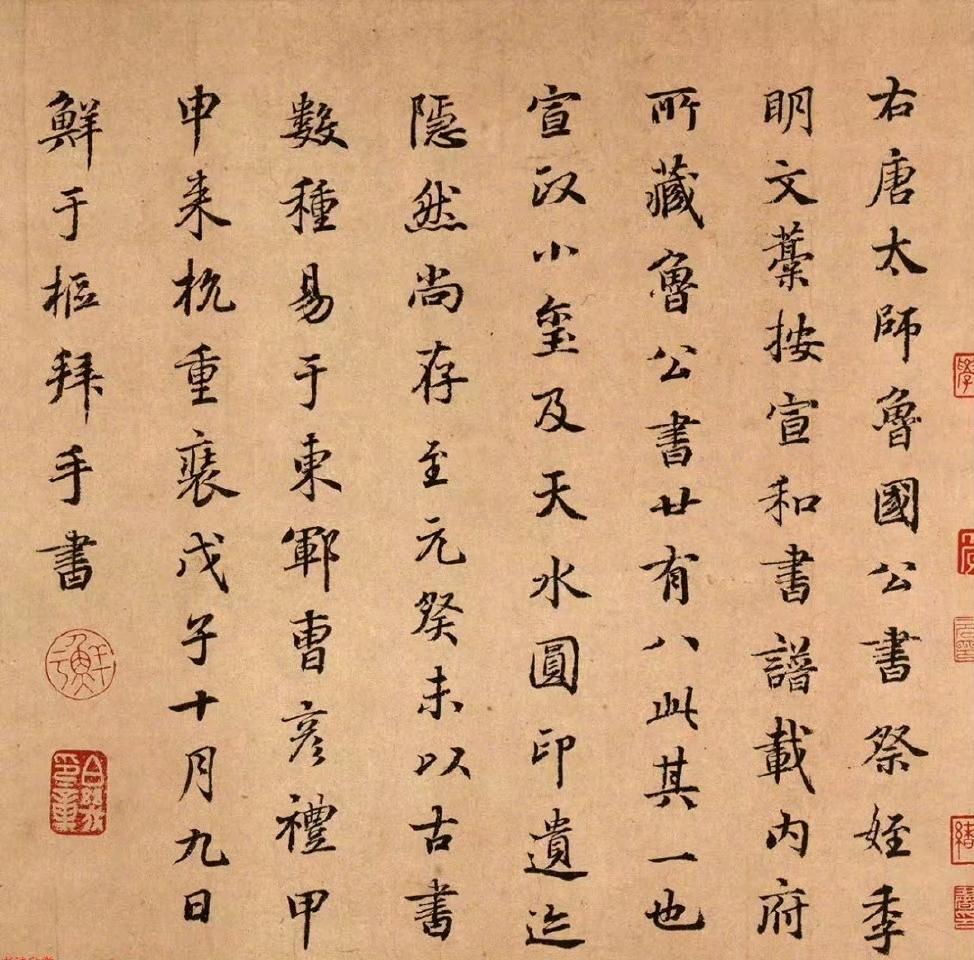 右唐太師魯國公書祭姪季
明文藁按宣和書譜載內府
所藏魯公書廿有八此其一也
宣政小璽及天水圓印遺迹
隠然尚存至元癸未以古書
數種易于東鄆曹彥禮甲
申来杭重裝戊子十月九日
鮮于樞拜手書